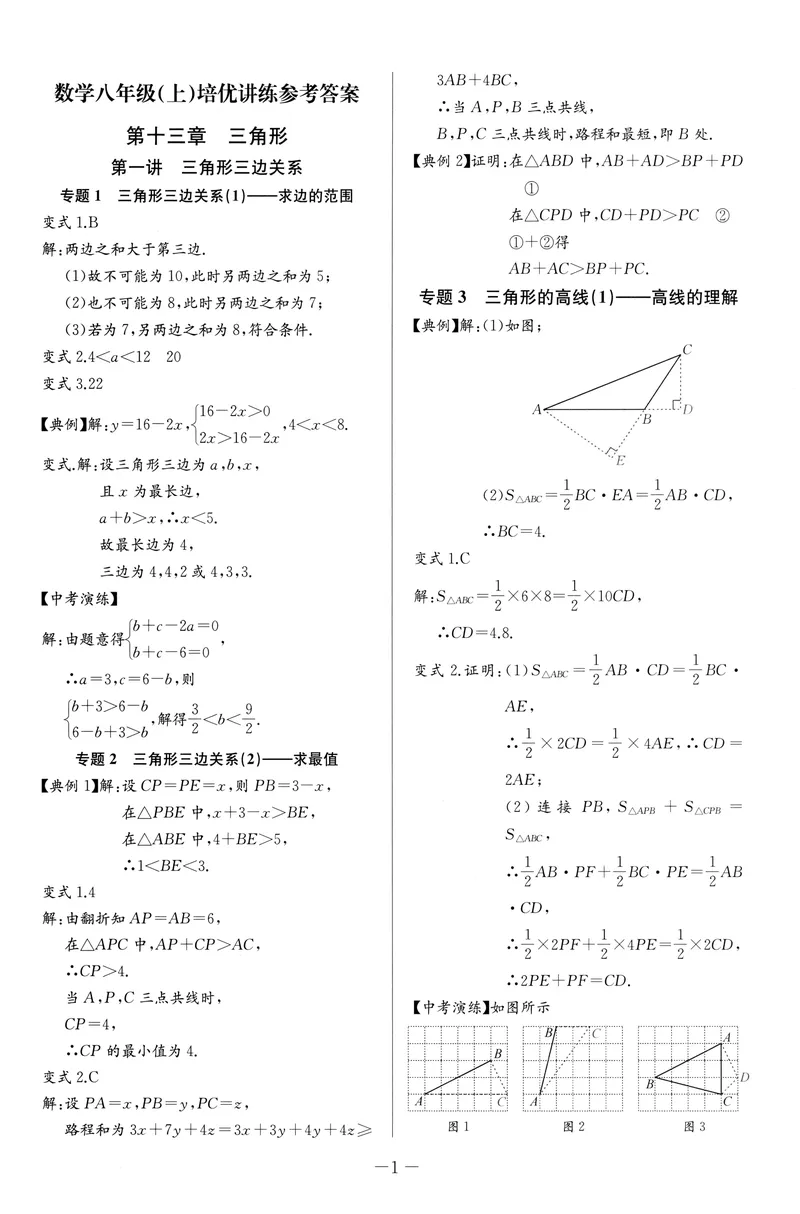 数学八年级(上)培优讲练参考答案
第十三章 三角形
第一讲 三角形三边关系
专题1 三角形三边关系(1)——求边的范围
变式1.B
解:两边之和大于第三边.
(1)故不可能为10,此时另两边之和为5;
(2)也不可能为8,此时另两边之和为7;
(3)若为7,另两边之和为8,符合条件.
变式2.4<a<12 20
变式3.22
【典例】解:y=16-2x,{16-2x>0
2x>16-2x,4<x<8.
变式.解:设三角形三边为a,b,x,
且x为最长边,
a+b>x,∴x<5.
故最长边为4,
三边为4,4,2或4,3,3.
【中考演练】
解:由题意得{b+c-2a=0
b+c-6=0,
∴a=3,c=6-b,则
{b+3>6-b
6-b+3>b,解得3/2<b<9/2.
专题2 三角形三边关系(2)——求最值
【典例1】解:设CP=PE=x,则PB=3-x,
在△PBE中,x+3-x>BE,
在△ABE中,4+BE>5,
∴1<BE<3.
变式1.4
解:由翻折知AP=AB=6,
在△APC中,AP+CP>AC,
∴CP>4.
当A,P,C三点共线时,
CP=4,
∴CP的最小值为4.
变式2.C
解:设PA=x,PB=y,PC=z,
路程和为3x+7y+4z=3x+3y+4y+4z≥
3AB+4BC,
∴当A,P,B三点共线,
B,P,C三点共线时,路程和最短,即B处.
【典例2】证明:在△ABD中,AB+AD>BP+PD
①
在△CPD中,CD+PD>PC ②
①+②得
AB+AC>BP+PC.
专题3 三角形的高线(1)——高线的理解
【典例】解:(1)如图;
C
A
B
D
E
(2)S△ABC=1/2BC·EA=1/2AB·CD,
∴BC=4.
变式1.C
解:S△ABC=1/2×6×8=1/2×10CD,
∴CD=4.8.
变式2.证明:(1)S△ABC=1/2AB·CD=1/2BC·
AE,
∴1/2×2CD=1/2×4AE,∴CD=
2AE;
(2)连接PB,S△APB+S△CPB=
S△ABC,
∴1/2AB·PF+1/2BC·PE=1/2AB
·CD,
∴1/2×2PF+1/2×4PE=1/2×2CD,
∴2PE+PF=CD.
【中考演练】如图所示
B
A
C
图1
B
C
A
图2
A
B
D
C
图3
—1—